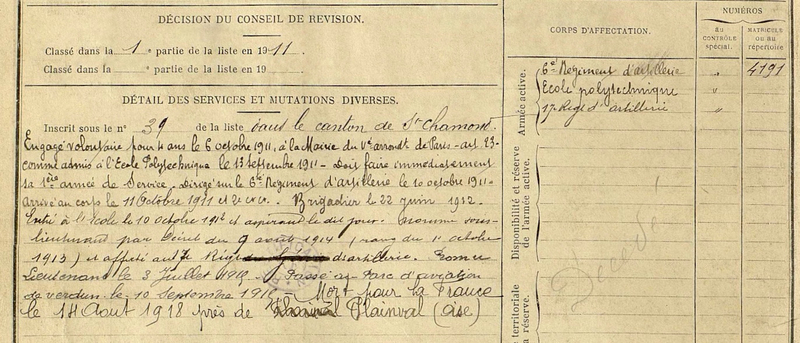 DÉCISION DU CONSEIL DE REVISION.
Classé dans la 1e partie de la liste en 1911.
Classé dans la e partie de la liste en 19
DÉTAIL DES SERVICES ET MUTATIONS DIVERSES.
Inscrit sous le n° 39 de la liste dans le canton de St Chamond.
Engagé volontaire pour 4 ans le 6 octobre 1911, à la Mairie du Ve arrondt de Paris - art. 23-
comme admis à l'Ecole Polytechnique le 13 septembre 1911 - Doit faire immédiatement
sa 1ère année de Service. Dirigé sur le 6e Régiment d'artillerie le 10 octobre 1911-
arrivé au corps le 11 octobre 1911 et 2e cer. Brigadier le 22 juin 1912.
Entré à l'école le 10 octobre 1912 et aspirant le dit jour. Nommé sous-
lieutenant par Décret du 9 août 1914 (rang du 1er octobre
1913) et affecté au Régt d'artillerie. Promu
Lieutenant le 3 Juillet 1916. Passé au Parc d'aviation
de Verdun le 10 Septembre 1916 - Mort pour la France
le 14 Aout 1918 près de Plainval (Oise)
CORPS D'AFFECTATION.
NUMÉROS
au CONTRÔLE spécial.
MATRICULE ou au répertoire
Armée active.
6e Régiment d'artillerie " 4191
Ecole polytechnique "
17e Régt d'artillerie "
Disponibilité et réserve de l'armée active.
Décédé
territoriale
sa réserve.